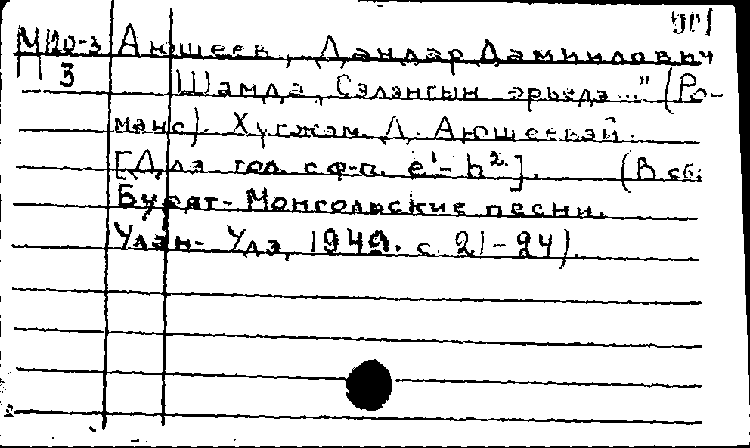 М120-3 Аюшеев, Дандар Дампилович
П 3 Шамда, Сэлэнгын эрьедэ..." (Ро-
манс). Хүгжэм Д. Аюшеевэй.
[Для гол. с ф-п. e¹- h²]. (В сб.
Бурят-Монгольские песни.
Улан-Удэ, 1949. с 21-24).